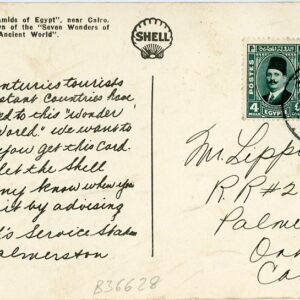 amids of Egypt", near Cairo.
wn of the "Seven Wonders of
Ancient World".
SHELL
POSTES
4
EGYPT
enturies tourists
stant Countries have
ed to this "Wonder
World." We wants to
you get this Card.
let the Shell
ny know when you
it by advising
's Service Station
almerston
Mr. Lippi
R.R #2
Palme
On
Ca
B36628